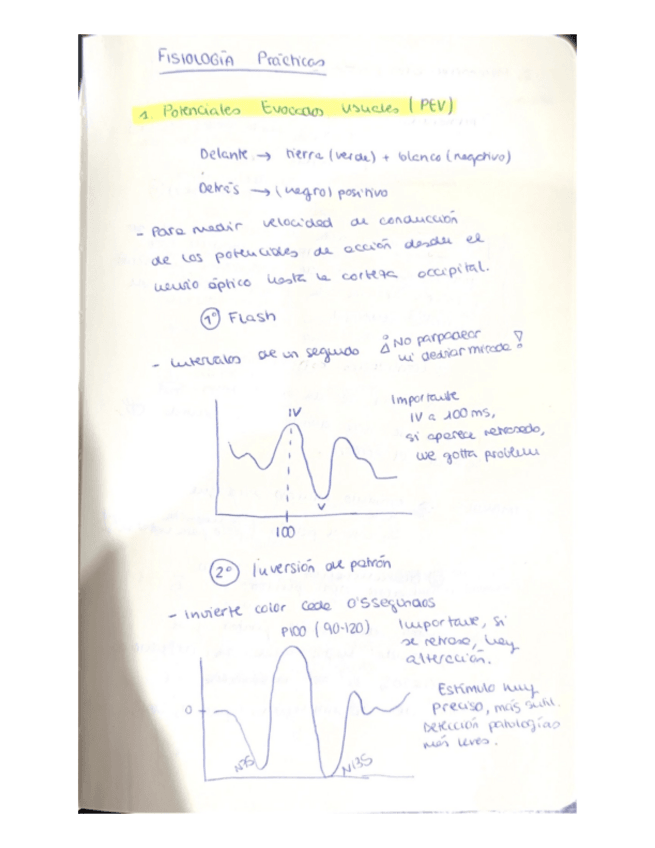 FISIOLOGÍA Prácticas
1. Potenciales Evocados visuales (PEV)
Delante → tierra (verde) + blanco (negativo)
Detrás → (negro) positivo
- Para medir velocidad de conducción
de los potenciales de acción desde el
nervio óptico hasta la corteza occipital.
1º Flash
- Intervalos de un segundo ¡No parpadear
ni desviar mirada!
Importante
IV a 100 ms,
si aparece retrasado,
we gotta problem
IV
V
100
2º Inversión de patrón
- Invierte color cada 0'5 segundos
P100 (90-120)
Importante, si
se retrasa, hay
alteración.
Estímulo muy
preciso, más sutil.
Detección patologías
más leves.
0
N75
N135